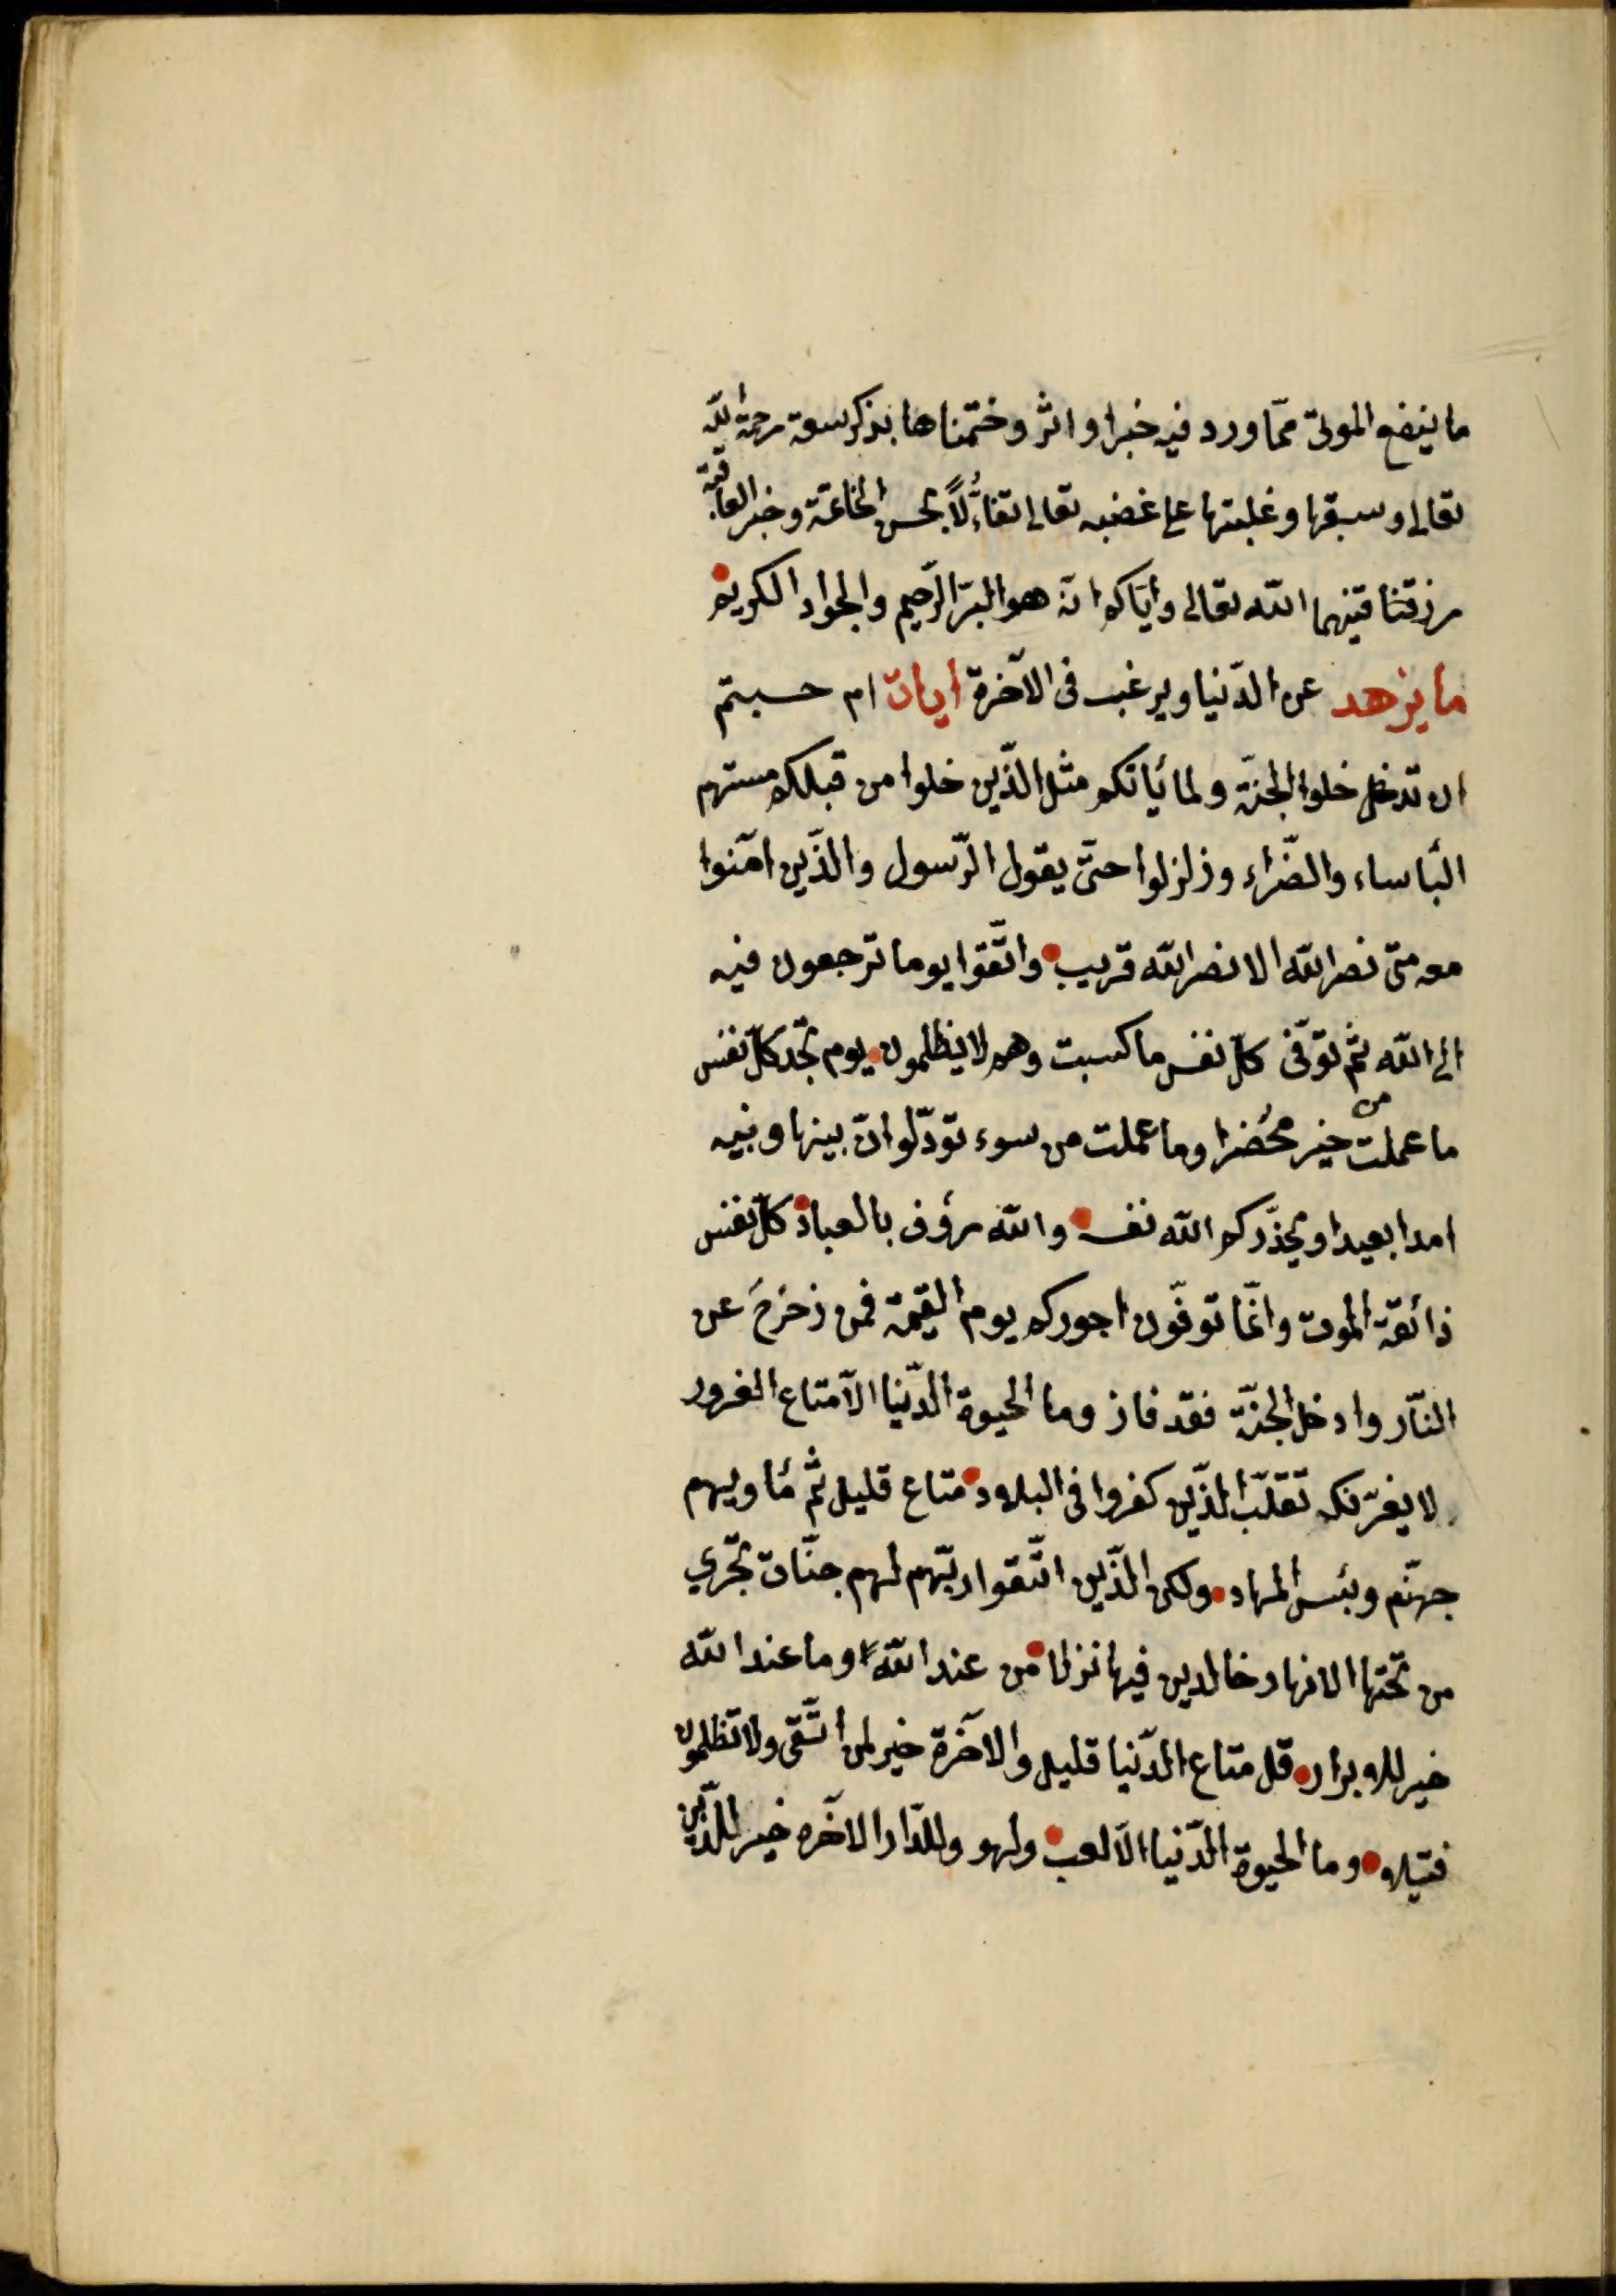 ما ينفع الموتى ممّا ورد فيه خبر او اثر وختمناها بذكر سعة رحمة الله
تعالى وسبقها وغلبتها على غضبه تعالى تفاءُلاً بحسن الخاتمة وخير العاقبة
رزقنا فيهما الله تعالى وايّاكم انّه هو البرّ الرّحيم والجواد الكريم
ما يزهد عن الدّنيا ويرغب فى الآخرة ايات ام حسبتم
ان تدخل خلوا الجنّة ولما ياتكم مثل الذّين خلوا من قبلكم مستهم
البأساء والضّراء وزلزلوا حتّى يقول الرّسول والذّين امنوا
معه متى نصر الله الا نصر الله قريب واتّقوا يوما ترجعون فيه
الى الله ثم توفّى كلّ نفس ما كسبت وهم لا يظلمون يوم تجد كلّ نفس
ما عملت من خير محُضرا وما عملت من سوء تودّ لو انّ بينها وبينه
امدا بعيدا ويحذّركم الله نفسه والله رؤف بالعباد كلّ نفس
ذائقة الموت وانّما توفّون اجوركم يوم القيمة فمن زحزح عن
النّار وادخل الجنّة فقد فاز وما الحيوة الدّنيا الاّ متاع الغرور
لا يغرّنك تقلّب الذّين كفروا فى البلاد متاع قليل ثمّ مأويهم
جهنّم وبئس المهاد ولكن الذّين اتّقوا ربّهم لهم جنّات تجّري
من تحتها الانهار خالدين فيها نزلا من عند الله وما عند الله
خير للابرار قل متاع الدّنيا قليل والآخرة خير لمن اتّقى ولا تظلمون
فتيلا وما الحيوة الدّنيا الاّ لعب ولهو وللدّار الآخره خير للذّين